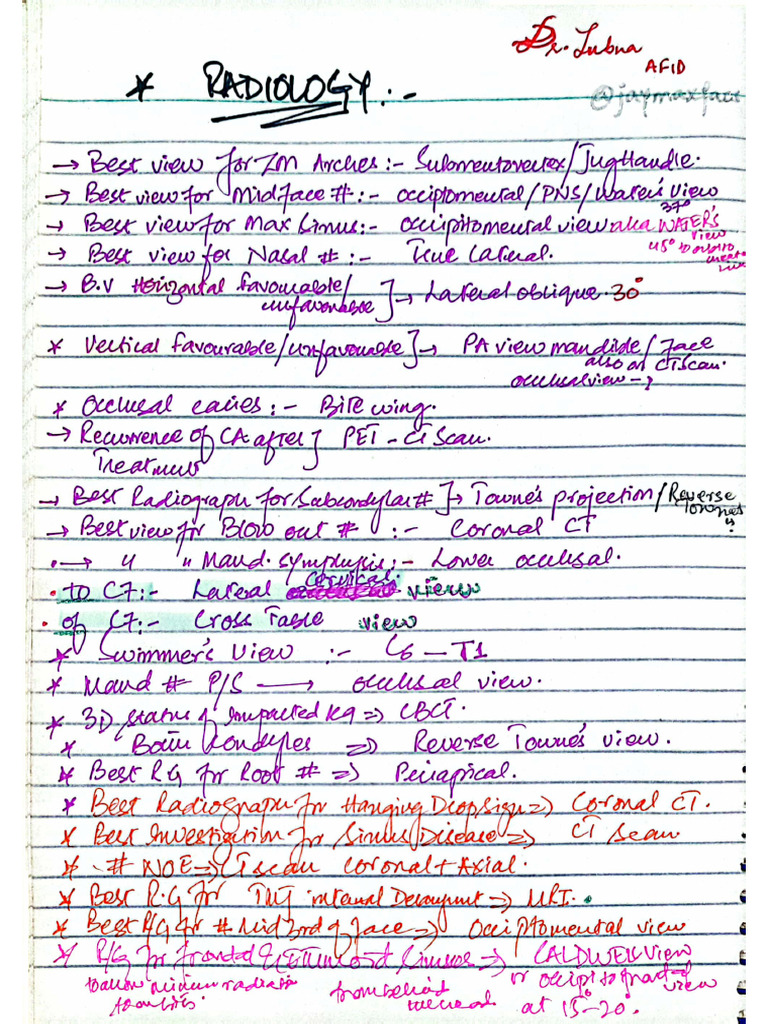 Dr. Lubna
AFID
* RADIOLOGY :-
@jaymaxface
→ Best view for ZM Arches :- Submentovertex/JugHandle.
→ Best view for Midface # :- occiptomental/PNS/Water's view
→ Best view for Max Sinus :- occipitomental view aka WATER'S view
37°
45° to orbito
→ Best view for Nasal # :- True Lateral.
→ B.V Horizontal favourable/unfavourable ] → Lateral oblique 30°
* Vertical favourable/unfavourable ] → PA view mandible/Face
also on CT Scan.
occlusal view →?
* Occlusal caries :- Bite wing.
→ Recurrence of CA after Treatment } PET - CT Scan.
→ Best Radiograph for Subcondylar # ] → Towne's projection/Reverse Townes?
→ Best view for Blow out # :- Coronal CT
• → " " Mand. symphysis :- Lower occlusal.
• TO C7 :- Lateral cervical view
• of C7 :- Cross Table view
* Swimmer's View :- C6 - T1
* Mand # P/S → occlusal view.
* 3D status of Impacted => CBCT.
* Both Condyles => Reverse Towne's view.
* Best RG for Root # => Periapical.
* Best Radiograph for Hanging Drop Sign => Coronal CT.
* Best Investigation for Sinus Disease => CT Scan
* # NOE => CT scan Coronal + Axial.
* Best R.G for TMJ internal Derangment => MRI.
* Best R/G for # Mid 3rd of face => Occiptomental view
* R/G for frontal & Ethmoid Sinuses => CALDWELL view
or occipitofrontal view
radiation
from behind
at 15°-20°